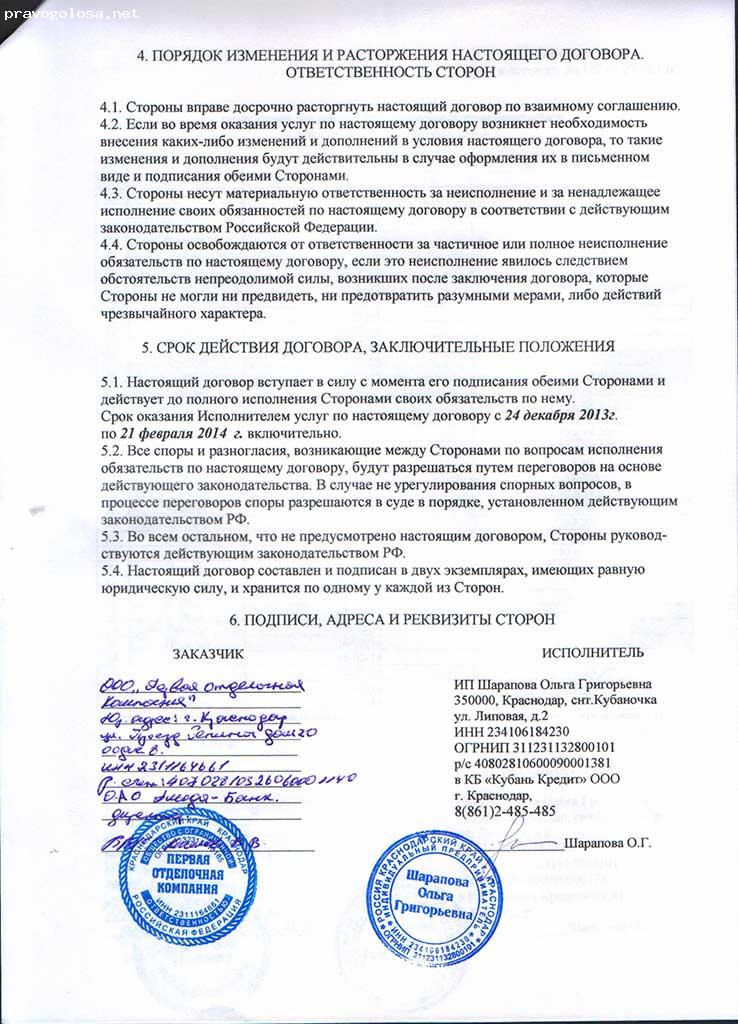 pravogolosa.net
4. ПОРЯДОК ИЗМЕНЕНИЯ И РАСТОРЖЕНИЯ НАСТОЯЩЕГО ДОГОВОРА.
ОТВЕТСТВЕННОСТЬ СТОРОН
4.1. Стороны вправе досрочно расторгнуть настоящий договор по взаимному соглашению.
4.2. Если во время оказания услуг по настоящему договору возникнет необходимость
внесения каких-либо изменений и дополнений в условия настоящего договора, то такие
изменения и дополнения будут действительны в случае оформления их в письменном
виде и подписания обеими Сторонами.
4.3. Стороны несут материальную ответственность за неисполнение и за ненадлежащее
исполнение своих обязанностей по настоящему договору в соответствии с действующим
законодательством Российской Федерации.
4.4. Стороны освобождаются от ответственности за частичное или полное неисполнение
обязательств по настоящему договору, если это неисполнение явилось следствием
обстоятельств непреодолимой силы, возникших после заключения договора, которые
Стороны не могли ни предвидеть, ни предотвратить разумными мерами, либо действий
чрезвычайного характера.
5. СРОК ДЕЙСТВИЯ ДОГОВОРА, ЗАКЛЮЧИТЕЛЬНЫЕ ПОЛОЖЕНИЯ
5.1. Настоящий договор вступает в силу с момента его подписания обеими Сторонами и
действует до полного исполнения Сторонами своих обязательств по нему.
Срок оказания Исполнителем услуг по настоящему договору с 24 декабря 2013г.
по 21 февраля 2014 г. включительно.
5.2. Все споры и разногласия, возникающие между Сторонами по вопросам исполнения
обязательств по настоящему договору, будут разрешаться путем переговоров на основе
действующего законодательства. В случае не урегулирования спорных вопросов, в
процессе переговоров споры разрешаются в суде в порядке, установленном действующим
законодательством РФ.
5.3. Во всем остальном, что не предусмотрено настоящим договором, Стороны руковод-
ствуются действующим законодательством РФ.
5.4. Настоящий договор составлен и подписан в двух экземплярах, имеющих равную
юридическую силу, и хранится по одному у каждой из Сторон.
6. ПОДПИСИ, АДРЕСА И РЕКВИЗИТЫ СТОРОН
ЗАКАЗЧИК
ООО "1-ая отделочная
компания"
Юр. адрес: г. Краснодар
ул. Проезд Репина дом 20
офис 8.
ИНН 2311164661
р. счет:
ОАО Банк.
директор
КРАСНОДАРСКИЙ КРАЙ КРАСНОДАР
ПЕРВАЯ
ОТДЕЛОЧНАЯ
КОМПАНИЯ
ИНН 2311164661
ОТВЕТСТВЕННОСТЬЮ
РОССИЙСКАЯ ФЕДЕРАЦИЯ
ИСПОЛНИТЕЛЬ
ИП Шарапова Ольга Григорьевна
350000, Краснодар, снт.Кубаночка
ул. Липовая, д.2
ИНН 234106184230
ОГРНИП 311231132800101
р/с 40802810600090001381
в КБ «Кубань Кредит» ООО
г. Краснодар,
8(861)2-485-485
Шарапова О.Г.
РОССИЯ КРАСНОДАРСКИЙ КРАЙ г. КРАСНОДАР
ИНДИВИДУАЛЬНЫЙ ПРЕДПРИНИМАТЕЛЬ
Шарапова
Ольга
Григорьевна
ИНН 234106184230
ОГРНИП 311231132800101